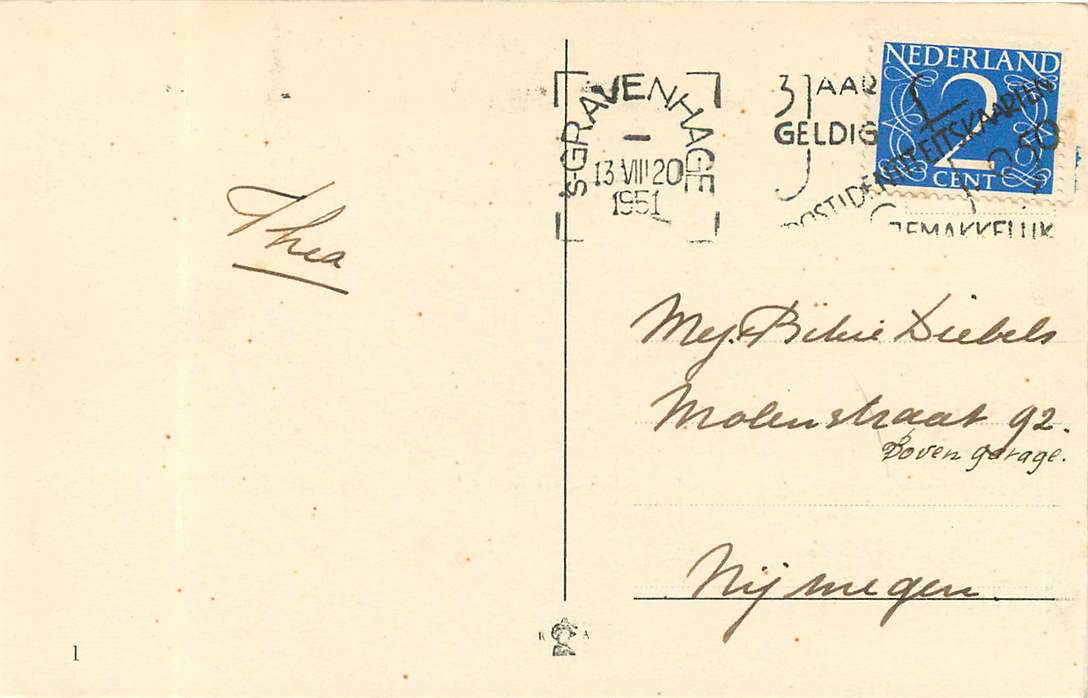 NEDERLAND
2
CENT
's-GRAVENHAGE
13 VIII 20
1951
3 JAAR
GELDIG
POSTIDENTITEITSKAARTEN
f 2.50
GEMAKKELIJK
Thea
Mej. Bibie Diebels
Molenstraat 92.
Boven garage.
Nijmegen.
R A
1